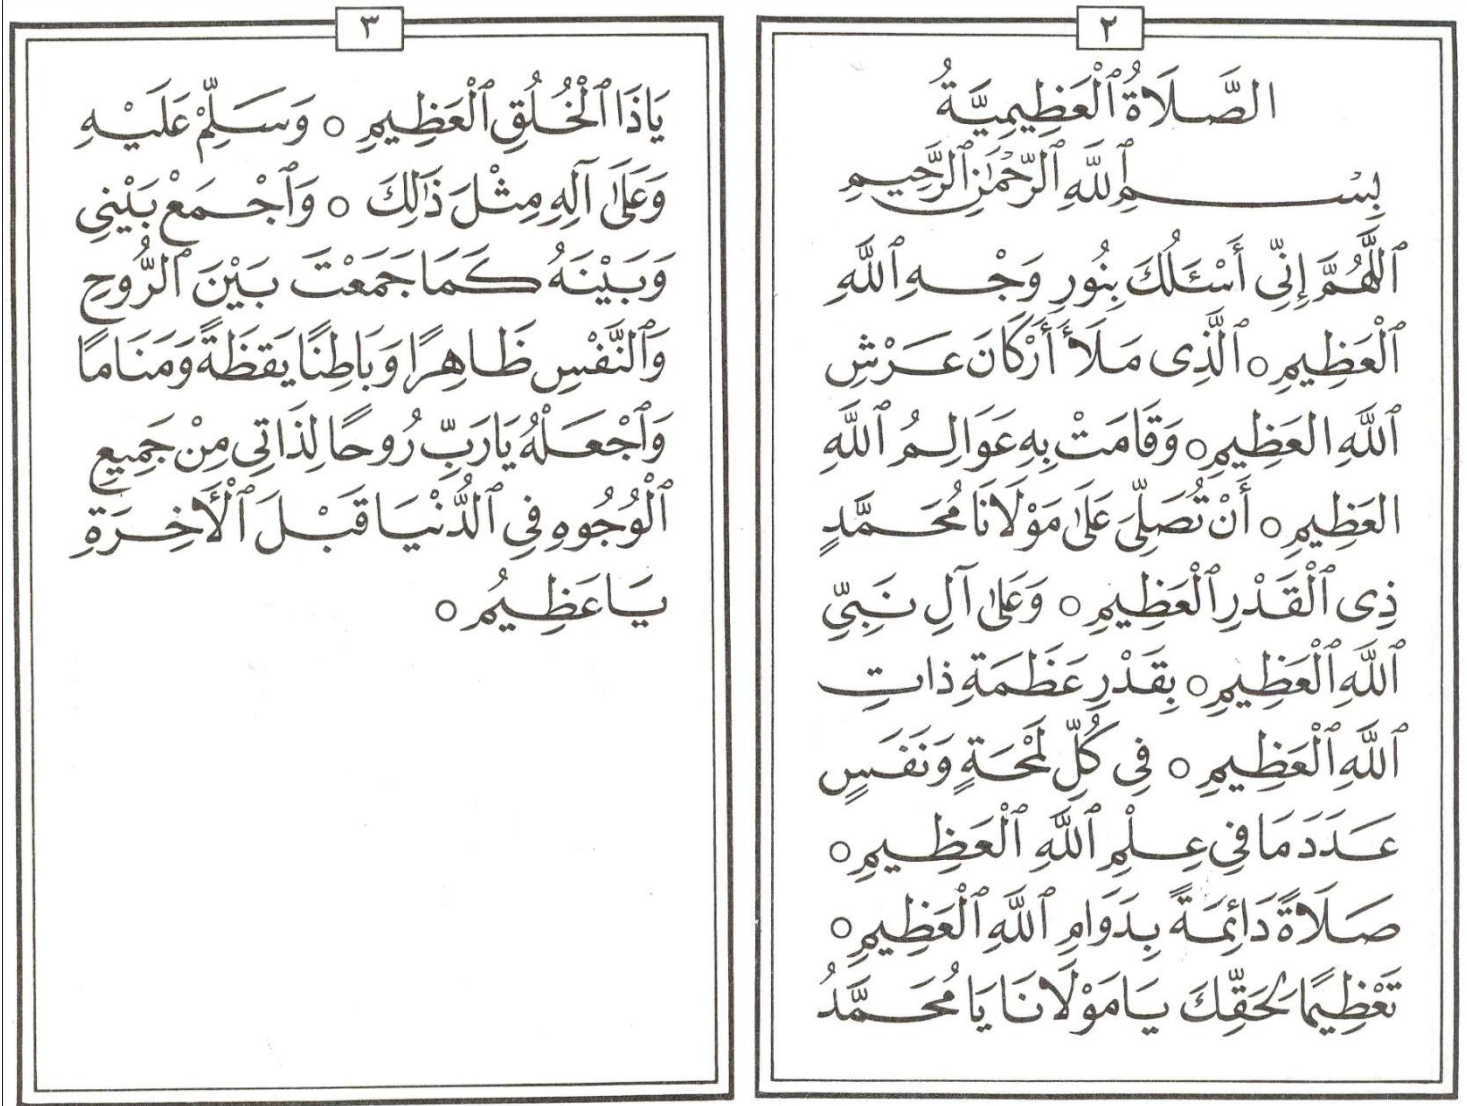 ٢
الصَّلَاةُ ٱلْعَظِيمِيَّةُ
بِسْمِ ٱللَّهِ ٱلرَّحْمَٰنِ ٱلرَّحِيمِ
ٱللَّهُمَّ إِنِّي أَسْئَلُكَ بِنُورِ وَجْهِ ٱللَّهِ
ٱلْعَظِيمِ ○ ٱلَّذِى مَلَأَ أَرْكَانَ عَرْشِ
ٱللَّهِ العَظِيمِ ○ وَقَامَتْ بِهِ عَوَالِمُ ٱللَّهِ
العَظِيمِ ○ أَنْ تُصَلِّيَ عَلَىٰ مَوْلَانَا مُحَمَّدٍ
ذِى ٱلْقَدْرِ ٱلْعَظِيمِ ○ وَعَلَىٰ آلِ نَبِيِّ
ٱللَّهِ ٱلْعَظِيمِ ○ بِقَدْرِ عَظَمَةِ ذاتِ
ٱللَّهِ ٱلْعَظِيمِ ○ فِى كُلِّ لَمْحَةٍ وَنَفَسٍ
عَدَدَ مَا فِى عِلْمِ ٱللَّهِ ٱلْعَظِيمِ ○
صَلَاةً دَائِمَةً بِدَوَامِ ٱللَّهِ ٱلْعَظِيمِ ○
تَعْظِيمًا لِحَقِّكَ يَا مَوْلَانَا يَا مُحَمَّدُ
٣
يَاذَا ٱلْخُلُقِ ٱلْعَظِيمِ ○ وَسَلِّمْ عَلَيْهِ
وَعَلَىٰ آلِهِ مِثْلَ ذَٰلِكَ ○ وَٱجْمَعْ بَيْنِى
وَبَيْنَهُ كَمَا جَمَعْتَ بَيْنَ ٱلرُّوحِ
وَٱلنَّفْسِ ظَاهِرًا وَبَاطِنًا يَقَظَةً وَمَنَامًا
وَٱجْعَلْهُ يَارَبِّ رُوحًا لِذَاتِى مِنْ جَمِيعِ
ٱلْوُجُوهِ فِى ٱلدُّنْيَا قَبْلَ ٱلْأَخِرَةِ
يَا عَظِيمُ ○